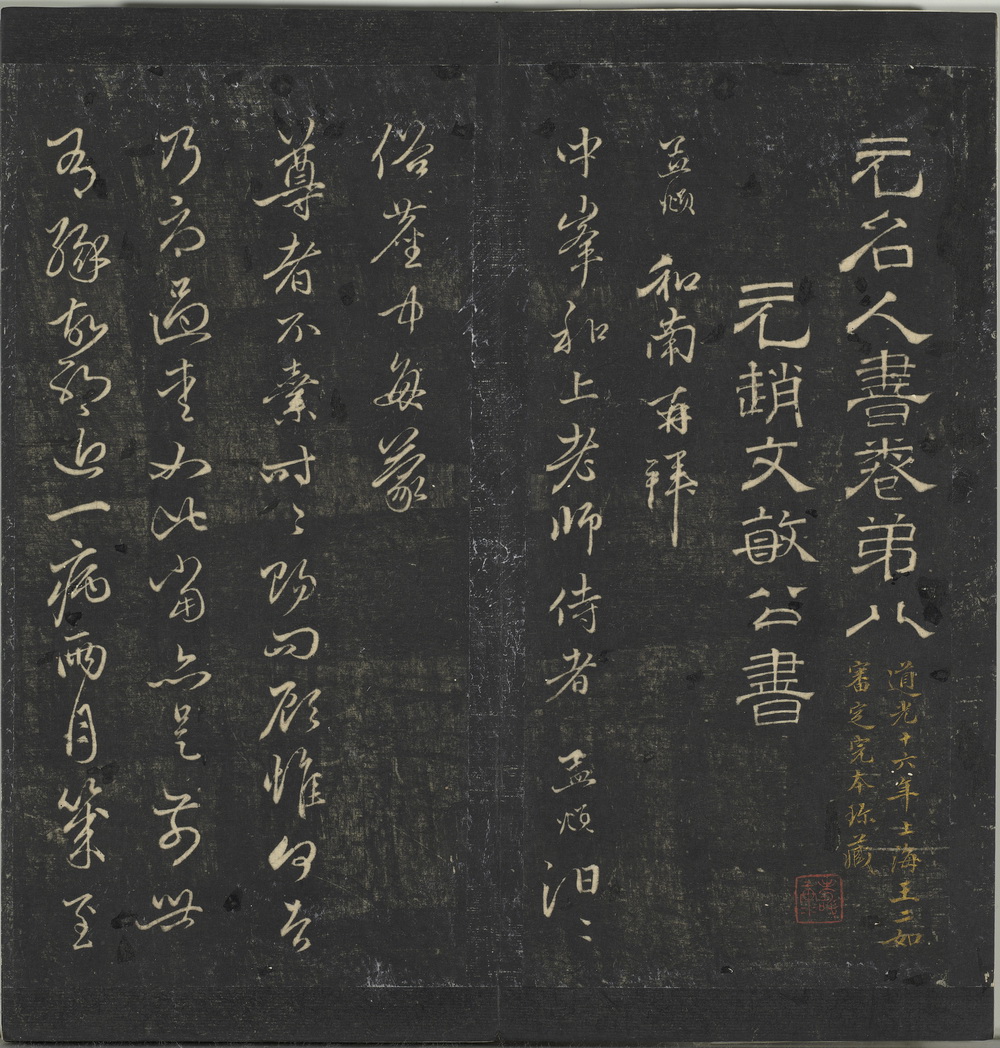 元名人書卷弟八
道光十六年上海王二如
審定完本珎藏
元趙文敏公書
孟頫和南再拜
中峯和上老師侍者孟頫汩〻
俗塵中每蒙
尊者不棄時〻賜問顧惟何者
乃尔過愛如此當亦是前世
有緣故耶近一病兩月幾至